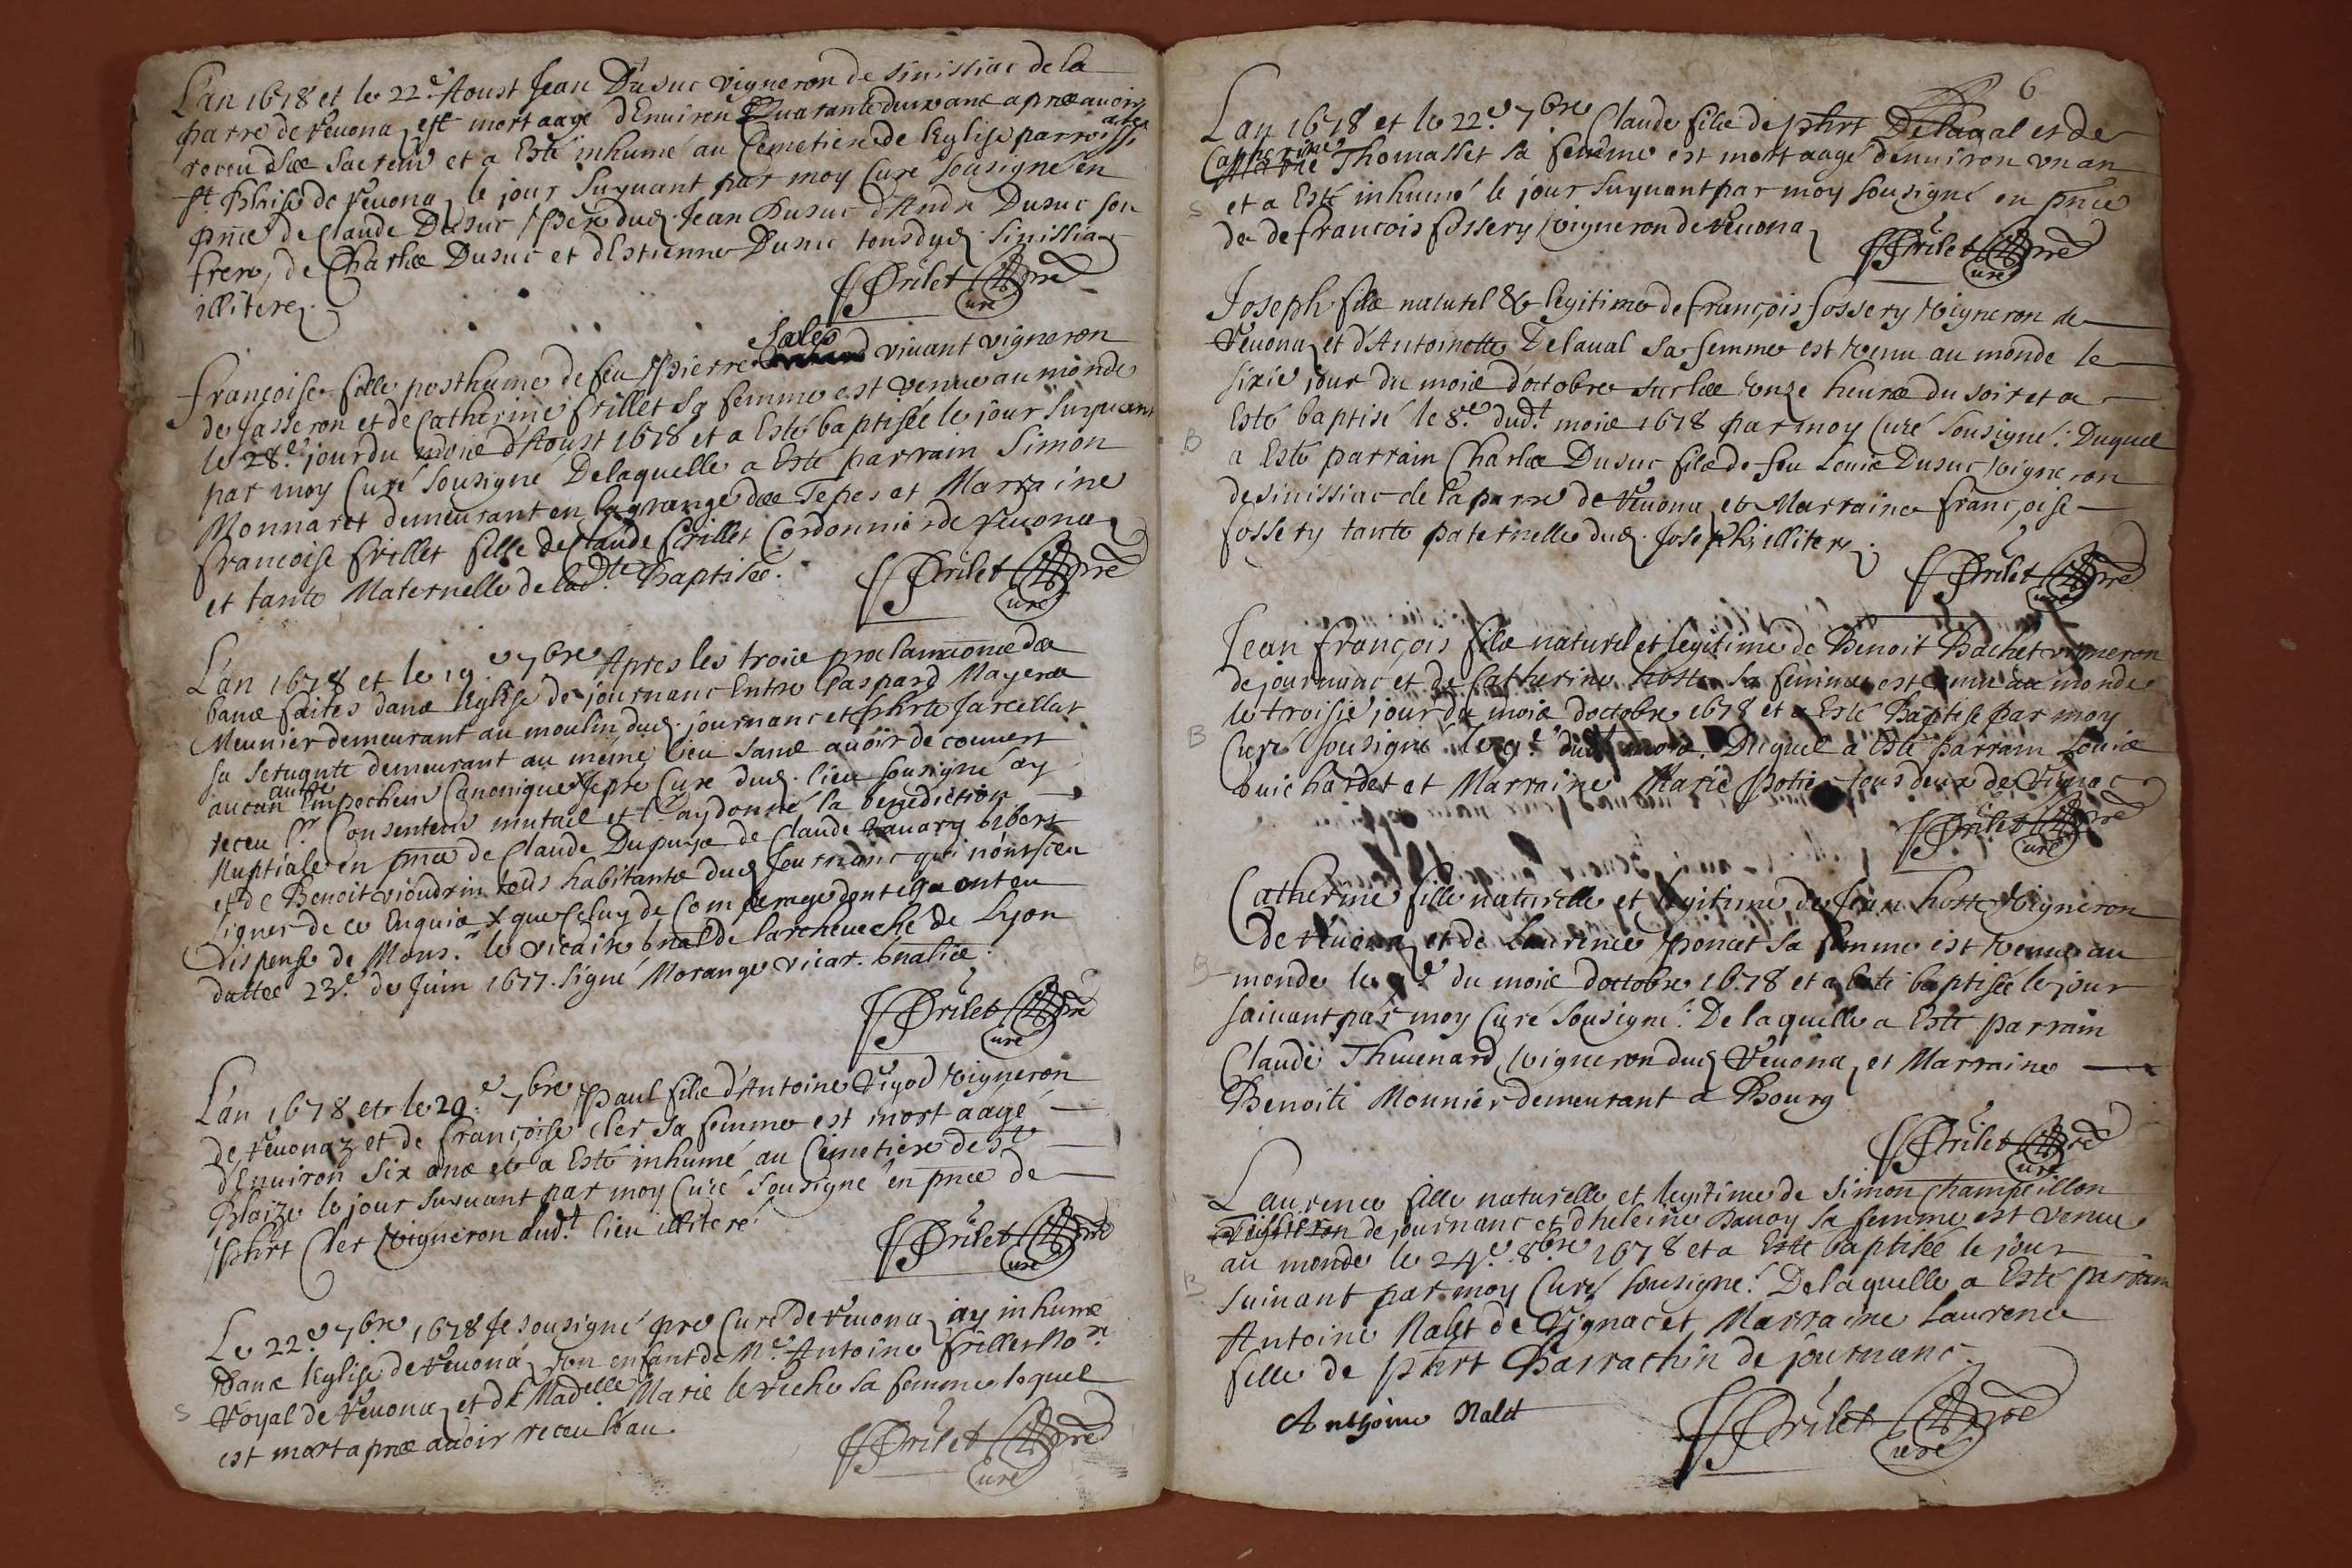 L'an 1678 et le 22.e Aoust Jean Dusuc vigneron de sinissiac de la
parre de Reuona est mort aagé d'Enuiron Quarante deux ans apres auoir
receu Les sacrem et a Esté inhumé au Cemetiere de l'Eglise parroissi ale
st. Blaise de Reuona le jour suyuant par moy Curé sousigné en
pnce de Claude Dusuc pere dud. Jean Dusuc d'André Dusuc son
frere, de Charles Dusuc et d'Estienne Dusuc tous dud. sinissiac
illiteres.
Frilet pre
Curé
Sales
Françoise fille posthume de feu Pierre viuant vigneron
de Jasseron et de Catherine frillet sa femme est venue au monde
le 28.e jour du mois d'Aoust 1678 et a Esté baptisée le jour suyuant
par moy Curé sousigné Delaquelle a Esté parrain Simon
Monnaret demeurant en la grange des Tepes et Marraine
francoise frillet fille de Claude frillet Cordonnier de Reuona
et tante Maternelle de lad.te Baptisée.
Frilet pre
Curé
L'an 1678 et le 19.e 7bre Apres les trois proclamaons des
bans faites dans l'Eglise de journanc Entre Gaspard Mayeres
Meunier demeurant au moulin dud. journanc et phrte Jarcellat
sa seruante demeurant au meme lieu sans auoir de couuert
aucun autre Empechem Canonique x Je pre Cure dud. lieu sousigné ay
receu lr. Consentem mutuel et lr ay donné la benediction
Nuptiale en pnce de Claude Dupuys de Claude bibost
et de Benoit vioudrin tous habitants dud Journanc qui n'ont sceu
signer de ce Enquis x que Celuy de Comperage dont ils ont eu
Dispense de Mons.r le vicaire gnal de l'archeueché de Lyon
dattée 23.e de Juin 1677. signé Morange vicar. gnalis.
Frilet pre
Curé
L'an 1678 et le 29.e 7bre Paul fils d'Antoine Vigod vigneron
de Reuonaz et de françoise Cler sa femme est mort aagé
d'Enuiron six ans et a Esté inhumé au Cimetiere de st
Blaize le jour suyuant par moy Curé sousigné en pnce de
phrt Cler vigneron dud.t lieu illiteré
Frilet pre
Curé
Le 22.e 7bre 1678 Je sousigné pre Curé De Reuona ay inhumé
Dans l'Eglise de Reuona un enfant de Me. Antoine frillet No.re
Royal de Reuona et de Madelle Marie sa femme lequel
est mort apres auoir receu l'eau.
Frilet pre
Curé
6
L'an 1678 et le 22.e 7bre Claude fils de phrt Delaual et de
Catherine Thomasset sa femme est mort aagé d'enuiron un an
et a Esté inhumé le jour suyuant par moy sousigné en pnce
de de francois fossery vigneron de Reuona
Frilet pre
Curé
Joseph fils naturel & legitime de françois fossery vigneron de
Reuona et d'Antoinette Delaual sa femme est venu au monde le
sixie jour du mois d'octobre sur les onze heures du soir et a
Esté baptisé le 8.e dud.t mois 1678 par moy Curé sousigné. Duquel
a Esté parrain Charles Dusuc fils de feu Louis Dusuc vigneron
de sinissiac de la parre de Reuona et Marraine françoise
fossery tante paternelle dud. Joseph; illiteres.
Frilet pre
Curé
Jean françois fils naturel et legitime de Benoit Bachet vigneron
de journanc et de Catherine hoste sa femme est venu au monde
le troisie jour du mois d'octobre 1678 et a Esté Baptisé par moy
Curé sousigné le 9.e dud.t mois. Duquel a Esté parrain Louis
buichardet et Marraine Marie potie tous deux de Rignac
Frilet pre
Curé
Catherine fille naturelle et legitime de Jean hoste vigneron
De Reuona et de Laurence poncet sa femme est venue au
monde le 9.e du mois d'octobre 1678 et a Esté baptisée le jour
suiuant par moy Curé sousigné. De laquelle a Esté parrain
Claude Thuenard, vigneron dud Reuona et Marraine
Benoite Monnier demeurant a Bourg
Frilet pre
Curé
Laurence fille naturelle et legitime de Simon Champeillon
de journanc et d'heleine sa femme est venue
au monde le 24.e 8bre 1678 et a Esté baptisée le jour
suiuant par moy Curé sousigné. De laquelle a Esté parrain
Antoine Nalet de Rignac et Marraine Laurence
fille de phrt Barrachin de journanc
Anthoine Nalet
Frilet pre
Curé